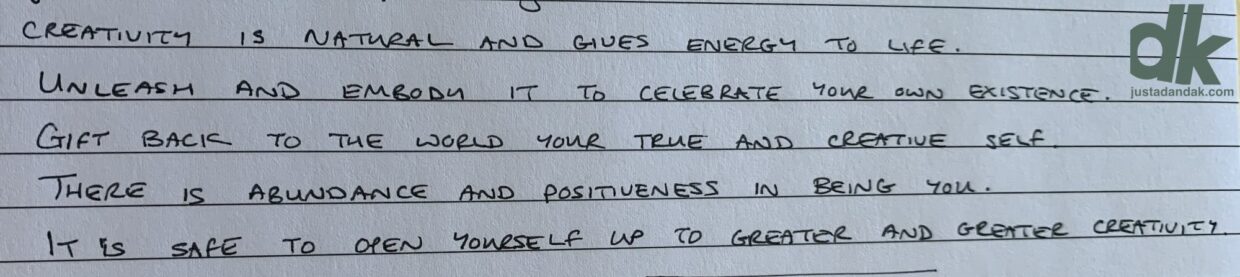 CREATIVITY IS NATURAL AND GIVES ENERGY TO LIFE.
UNLEASH AND EMBODY IT TO CELEBRATE YOUR OWN EXISTENCE.
GIFT BACK TO THE WORLD YOUR TRUE AND CREATIVE SELF.
THERE IS ABUNDANCE AND POSITIVENESS IN BEING YOU.
IT IS SAFE TO OPEN YOURSELF UP TO GREATER AND GREATER CREATIVITY.
dk
justadandak.com